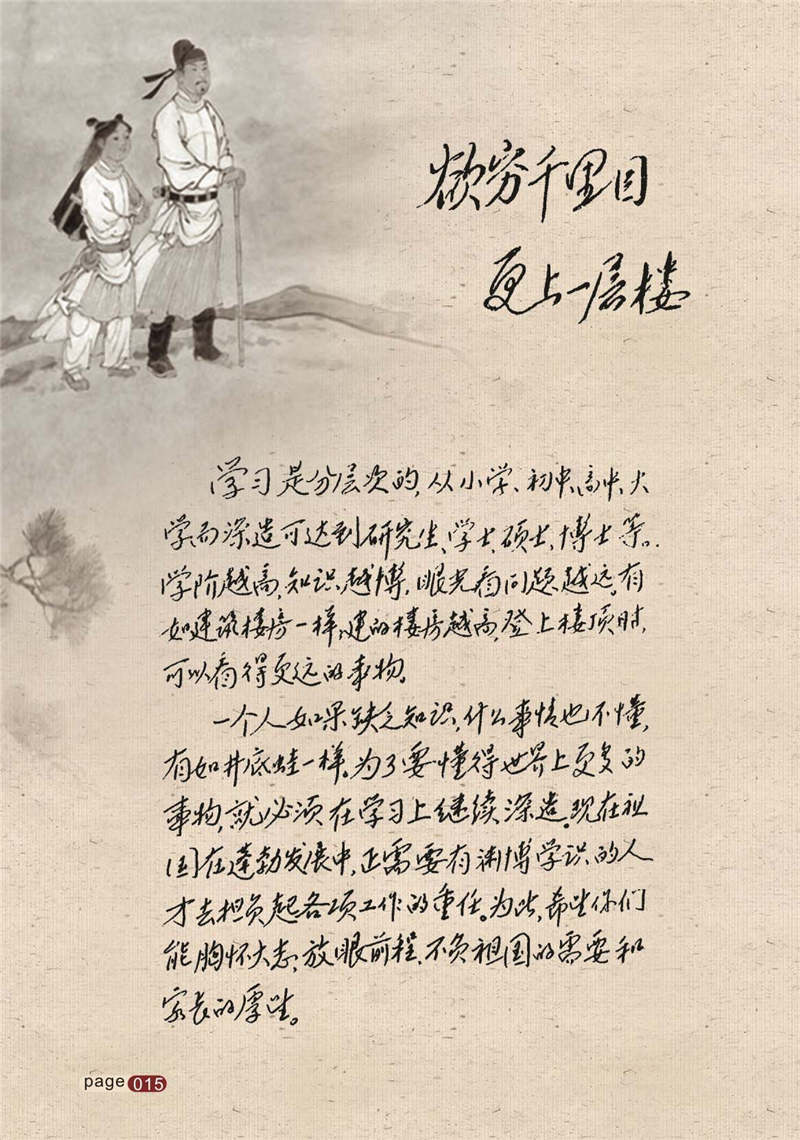 欲穷千里目
更上一层楼
学习是分层次的,从小学、初中、高中、大
学而深造可达到研究生、学士、硕士、博士等。
学阶越高,知识越博,眼光看问题越远。有
如建筑楼房一样,建的楼房越高,登上楼顶时,
可以看得更远的事物。
一个人如果缺乏知识,什么事情也不懂,
有如井底蛙一样。为了要懂得世界上更多的
事物,就必须在学习上继续深造。现在祖
国在蓬勃发展中,正需要有渊博学识的人
才去担负起各项工作的重任。为此,希望你们
能胸怀大志,放眼前程,不负祖国的需要和
家长的厚望。
page 015